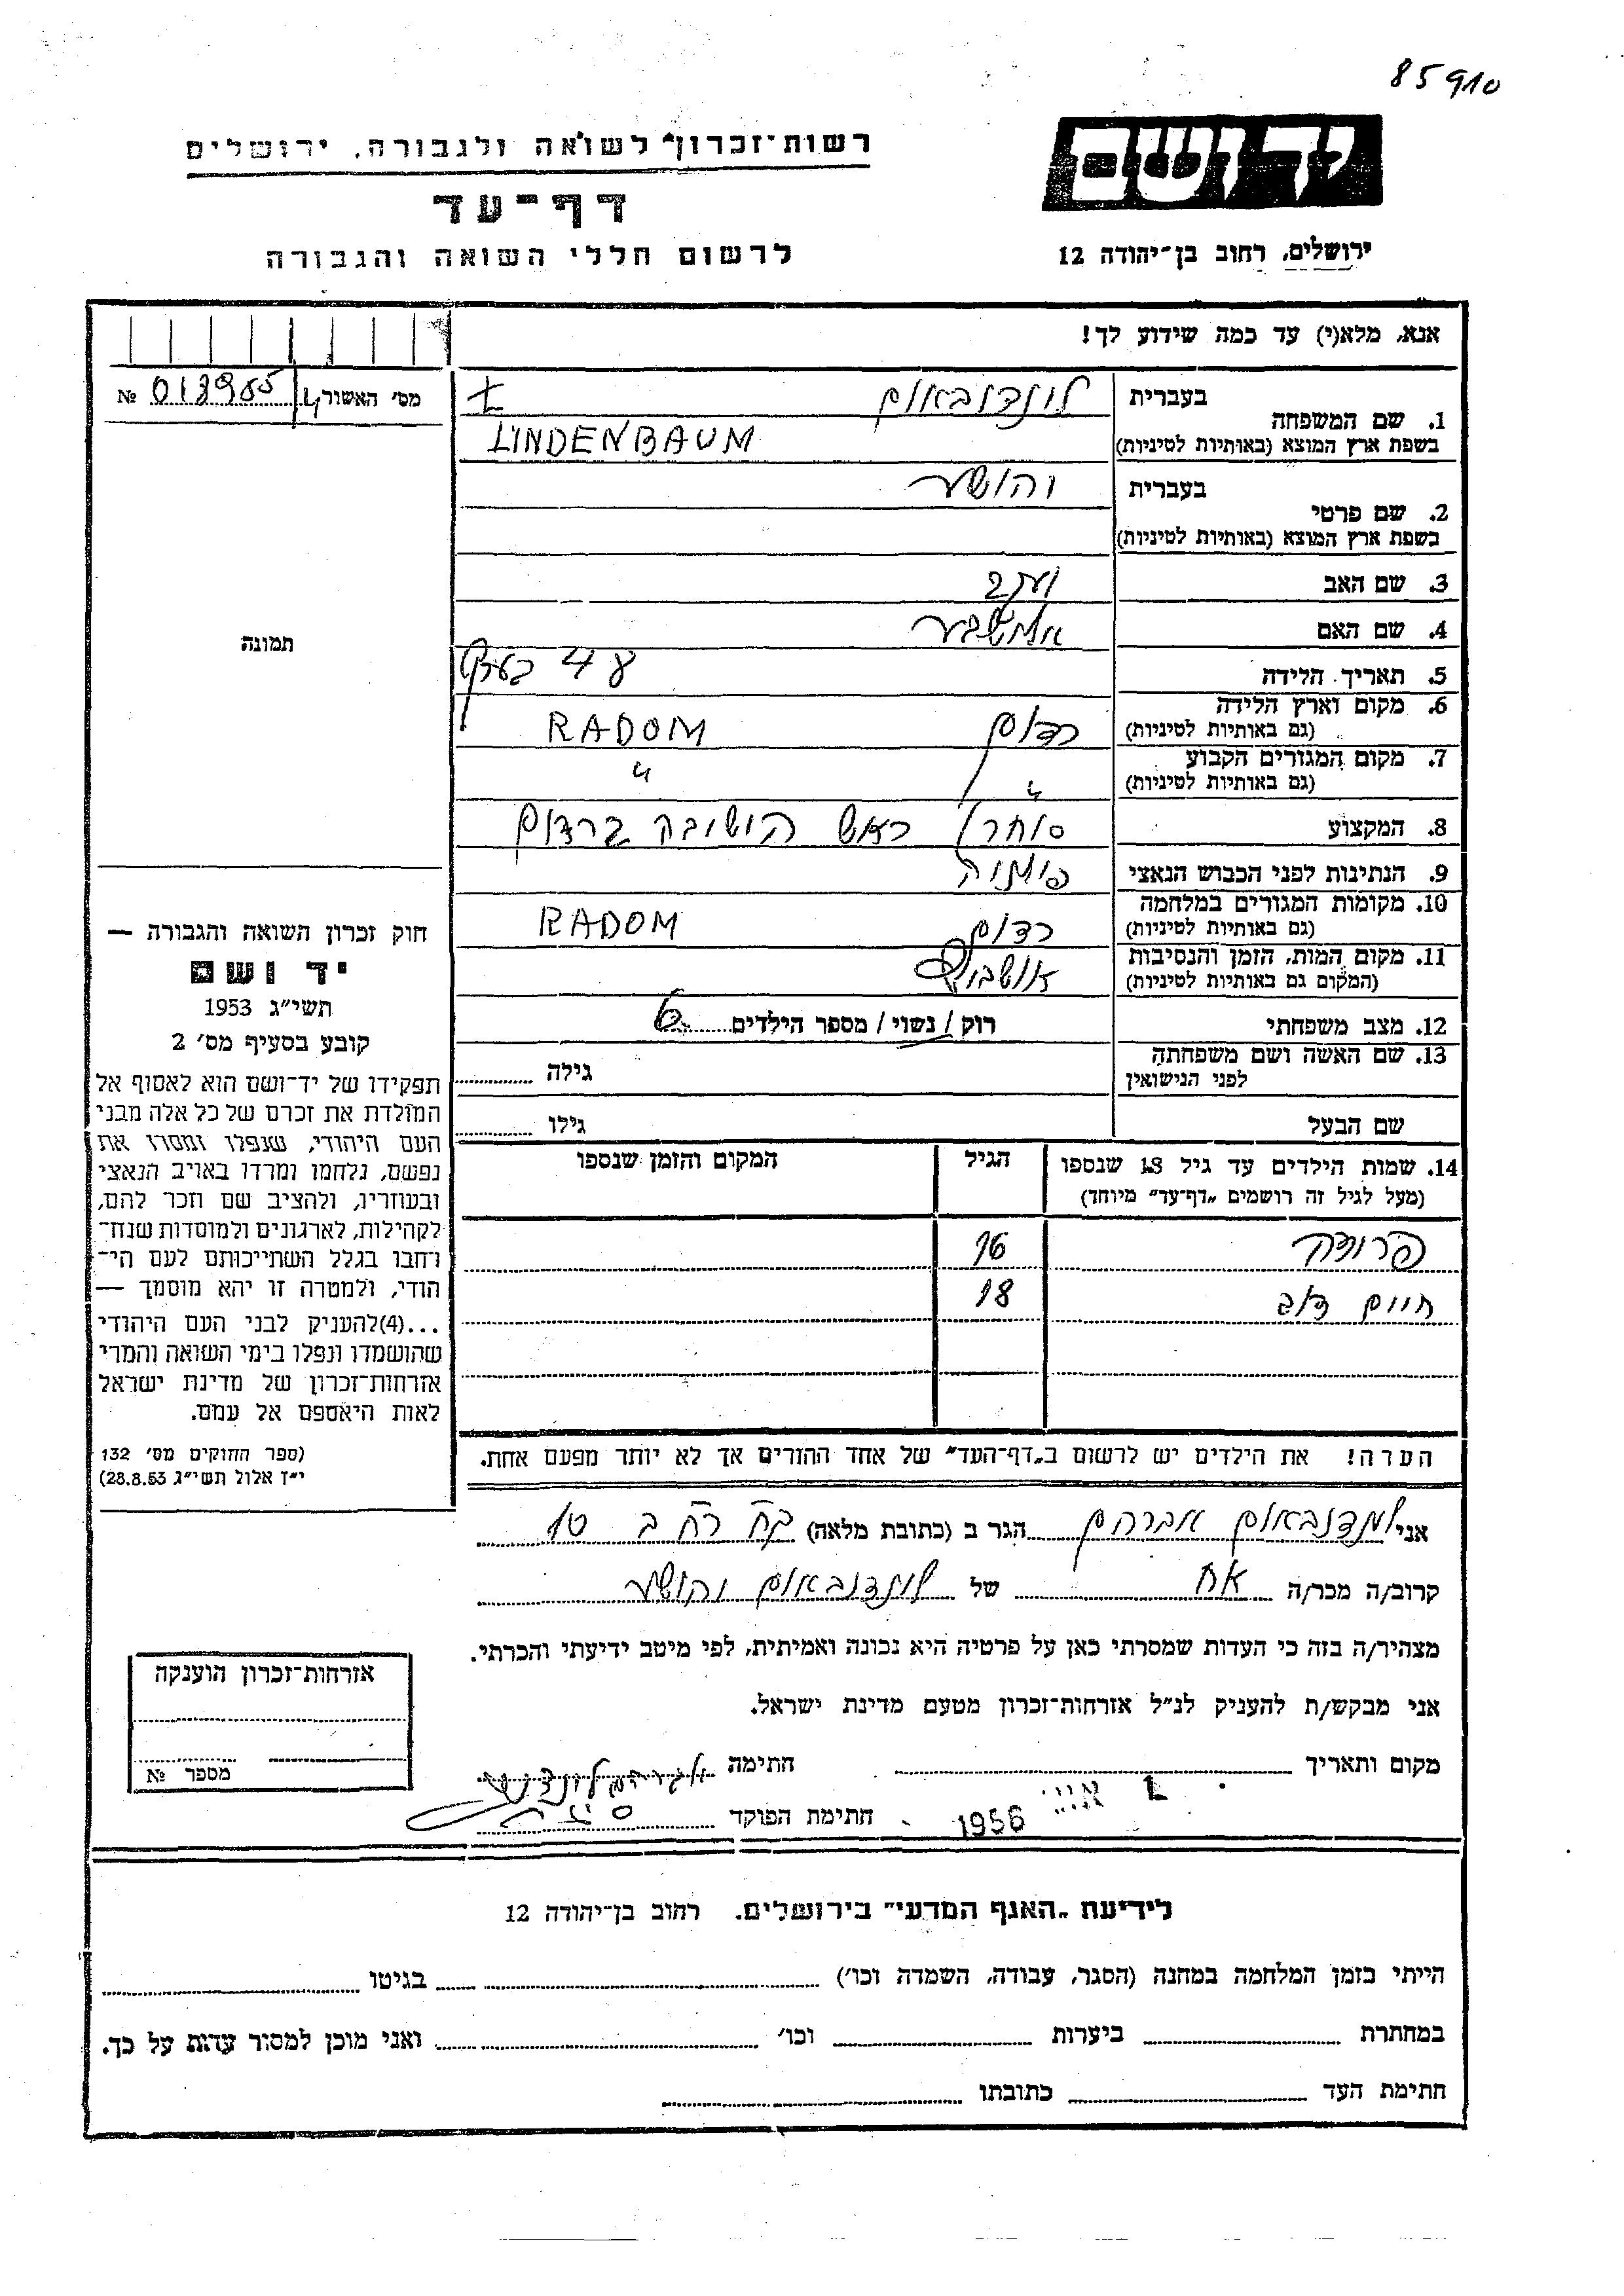 85910
רשות־זכרון לשואה ולגבורה, ירושלים
יד ושם
דף־עד
לרשום חללי השואה והגבורה
ירושלים, רחוב בן־יהודה 12
אנא, מלא(י) עד כמה שידוע לך!
מס׳ האשור
№
1. שם המשפחה
בעברית
לינדנבאום
בשפת ארץ המוצא (באותיות לטיניות)
LINDENBAUM
2. שם פרטי
בעברית
יהושע
בשפת ארץ המוצא (באותיות לטיניות)
3. שם האב
4. שם האם
אלישבע
5. תאריך הלידה
48 בערך
6. מקום וארץ הלידה
(גם באותיות לטיניות)
רדום RADOM
7. מקום המגורים הקבוע
(גם באותיות לטיניות)
〃 〃
8. המקצוע
סוחר / ראש הישיבה ברדום
9. הנתינות לפני הכבוש הנאצי
פולניה
10. מקומות המגורים במלחמה
(גם באותיות לטיניות)
רדום RADOM
11. מקום המות, הזמן והנסיבות
(המקום גם באותיות לטיניות)
12. מצב משפחתי
רוק / נשוי / מספר הילדים 6
13. שם האשה ושם משפחתה
לפני הנישואין
גילה
שם הבעל
גילו
14. שמות הילדים עד גיל 18 שנספו
(מעל לגיל זה רושמים „דף־עד״ מיוחד)
הגיל
המקום והזמן שנספו
16
חיים דוב 18
הערה! את הילדים יש לרשום ב„דף־העד״ של אחד ההורים אך לא יותר מפעם אחת.
תמונה
חוק זכרון השואה והגבורה —
יד ושם
תשי״ג 1953
קובע בסעיף מס׳ 2
תפקידו של יד־ושם הוא לאסוף אל
המולדת את זכרם של כל אלה מבני
העם היהודי, שנפלו ומסרו את
נפשם, נלחמו ומרדו באויב הנאצי
ובעוזריו, ולהציב שם וזכר להם,
לקהילות, לארגונים ולמוסדות שנח־
רחבו בגלל השתייכותם לעם הי־
הודי, ולמטרה זו יהא מוסמך —
...(4)להעניק לבני העם היהודי
שהושמדו ונפלו בימי השואה והמרי
אזרחות־זכרון של מדינת ישראל
לאות היאספם אל עמם.
(ספר החוקים מס׳ 132
י״ז אלול תשי״ג 28.8.53)
אני לינדנבאום אברהם הגר ב (כתובת מלאה)
קרוב/ה מכר/ה אח של לינדנבאום יהושע
מצהיר/ה בזה כי העדות שמסרתי כאן על פרטיה היא נכונה ואמיתית, לפי מיטב ידיעתי והכרתי.
אני מבקש/ת להעניק לנ״ל אזרחות־זכרון מטעם מדינת ישראל.
מקום ותאריך
חתימה
1956
חתימת הפוקד
אזרחות־זכרון הוענקה
מספר №
לידיעת „האגף המדעי״ בירושלים. רחוב בן־יהודה 12
הייתי בזמן המלחמה במחנה (הסגר, עבודה, השמדה וכו׳) בגיטו
במחתרת ביערות וכו׳ ואני מוכן למסור עדות על כך.
חתימת העד כתובתו